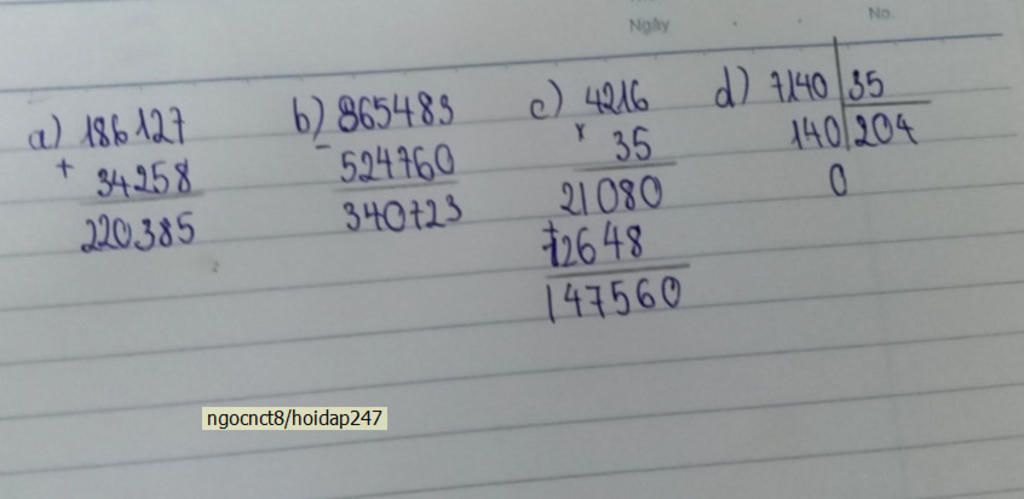 Ngày
No.
a) 186127
+
34258
220385
b) 865483
-
524760
340723
c) 4216
x
35
21080
+
12648
147560
d) 7140 35
140 204
0
ngocnct8/hoidap247